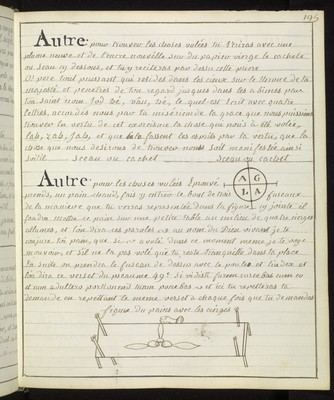 195
Autre pour trouver les choses volées tu Ecriras avec une
plume neuve et de l'encre nouvelle sur du papier vierge le cachet
ou sceau cy dessous, et tu y reciteras par dessus cette priere
St pere tout puissant qui residés dans les cieux sur le throne de ta
majesté et penetrés de ton regard jusques dans les abimes par
ton saint nom Jod hé, vau, hé, le quel est Ecrit avec quatre
lettres, accordés nous par ta misericorde la grace que nous puissions
trouver la vertu de cet exorcisme la chose que nous a esté volée
Lab, Zab, Jab, et que les esprits par ta vertu, que la
chose que nous desirons de trouver nous soit manifestée ainsi
soit il Sceau ou cachet Sceau ou cachet
A G
L A
Autre. pour les choses volées Eprouvé
prends, un pain chaud, fais y entrer le bout de trois fuseaux
de la maniere que tu verras representée dans la figure cy jointe il
faudra mettre ce pain sur une petite table au milieu de quatre cierges
allumés, et l'on dira ces paroles au nom du Dieu vivant je te
conjure toi pain, que si N a volé dans ce moment meme je te voye
mouvoir, et s'il ne l'a pas volé que tu reste tranquille dans ta place
la suite on prendra le fuseau de dessus avec le pouce et l'index et
l'on dira ce verset du pseaume 49e. Si videbas furem currebas cum eo
et cum adulteris portionem tuam ponebas et ici tu repetteras ta
demande en repettant le meme verset a chaque fois que tu demandes
figure du pain avec les cierges